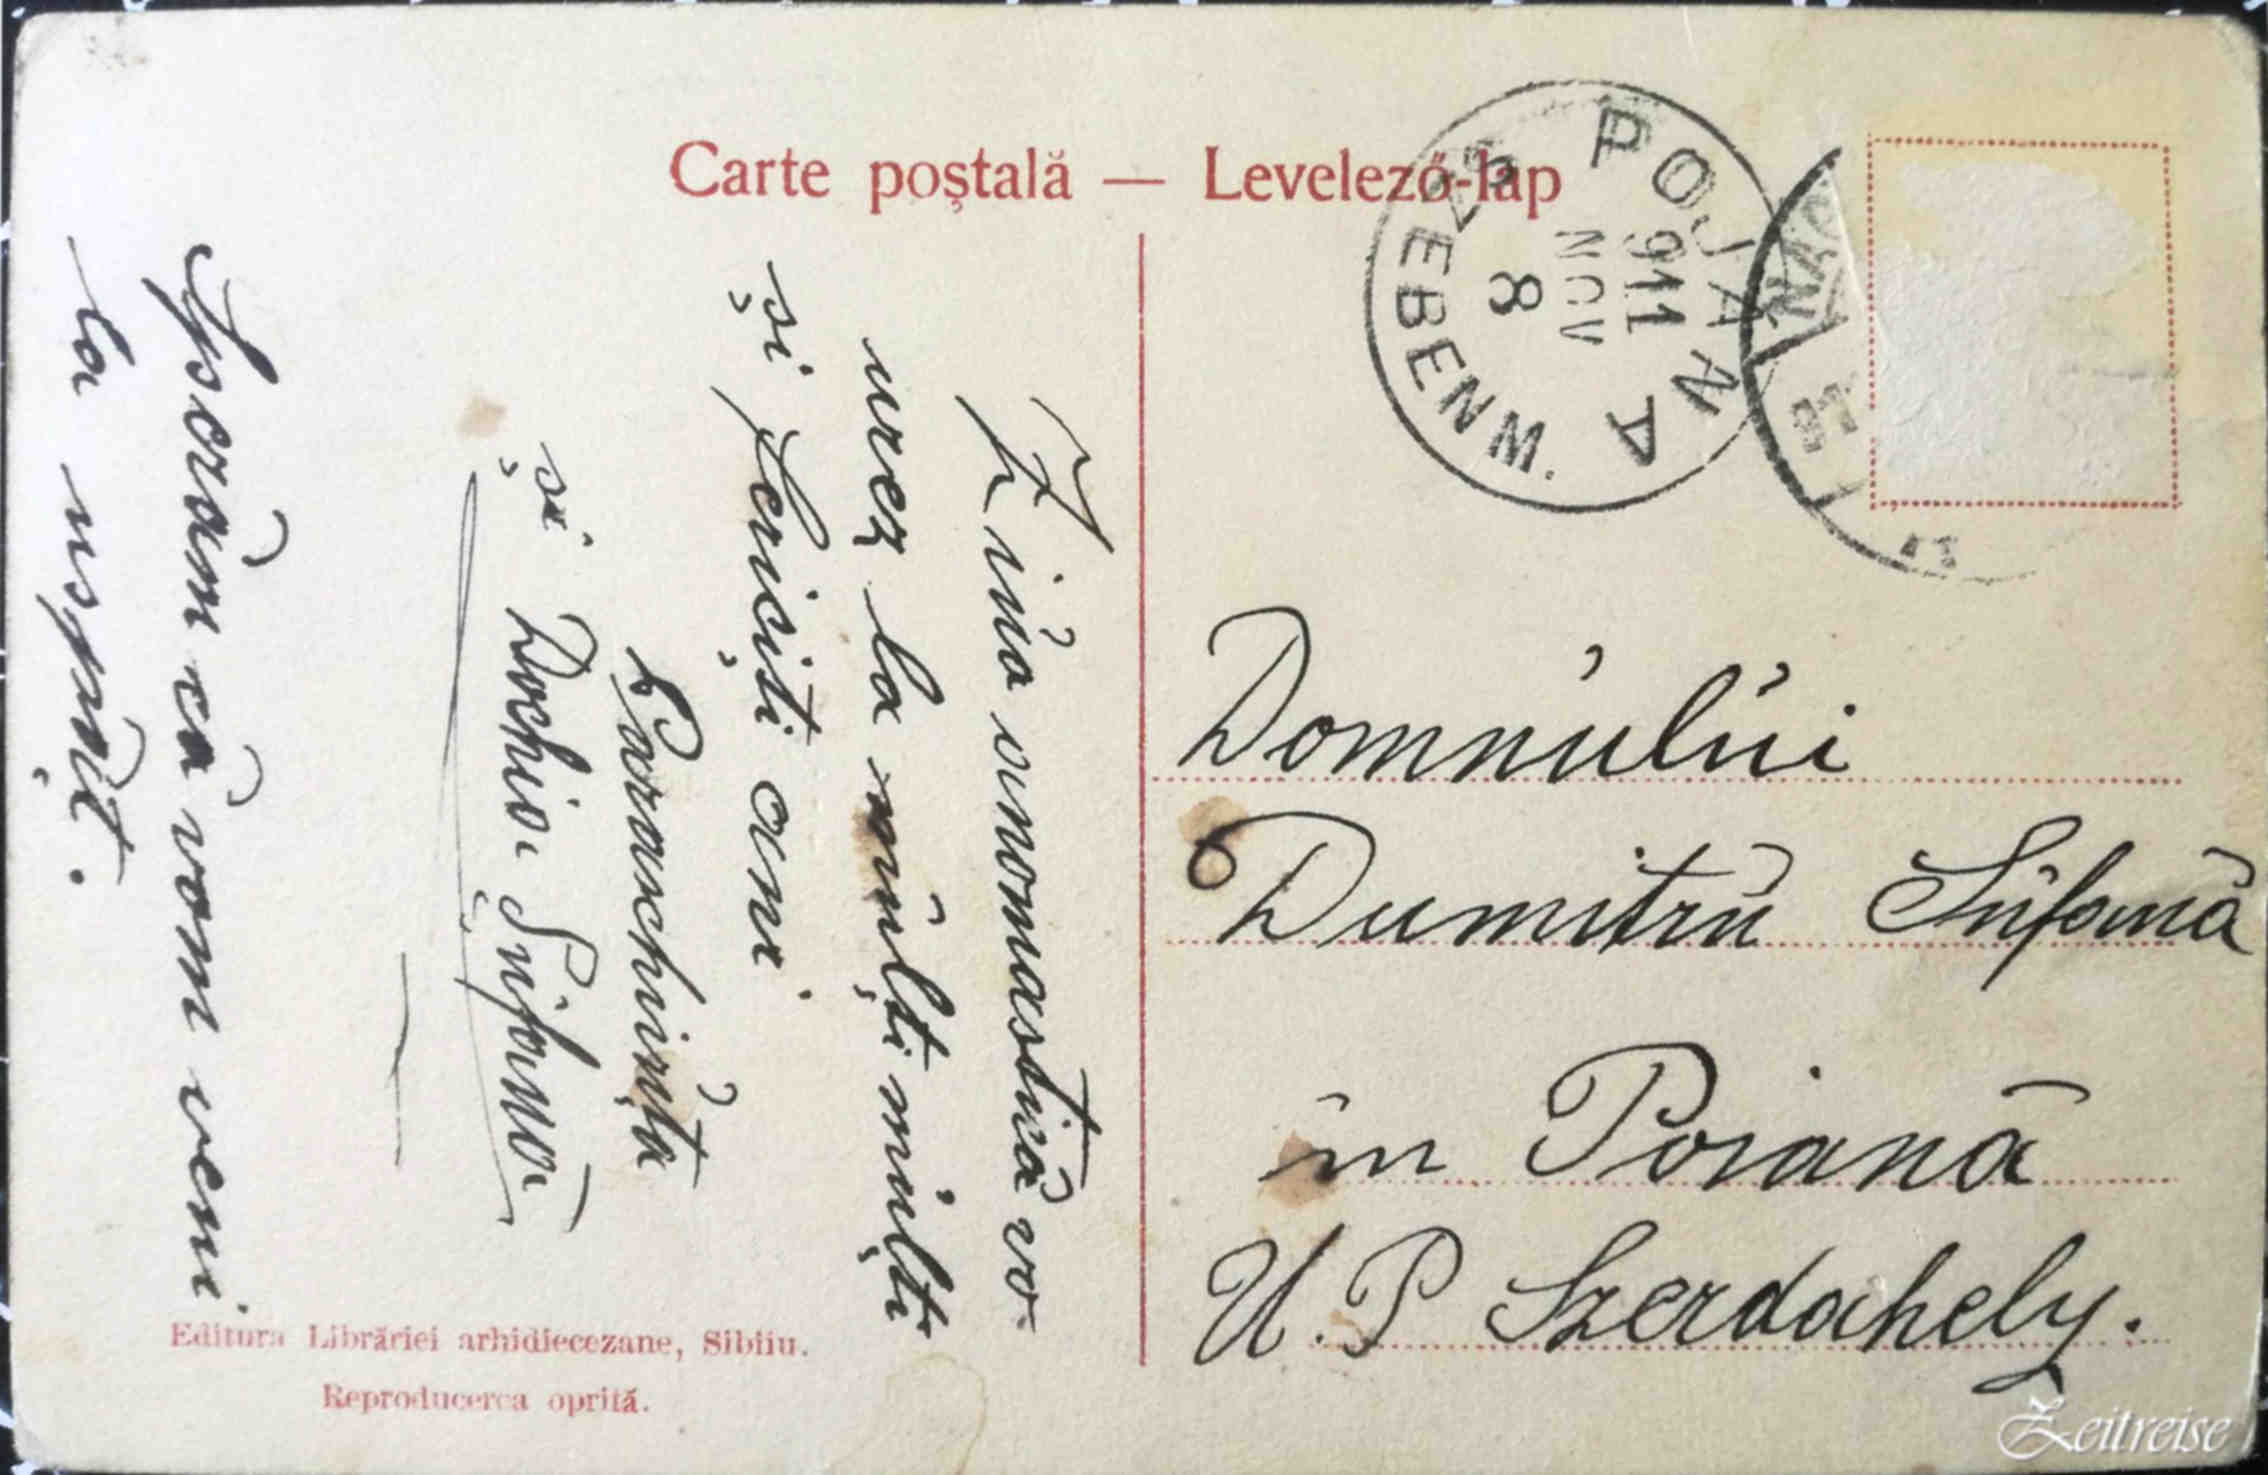 Carte poștală — Levelező-lap
POJANA
SZEBENW.
911
NOV
8
Ziua onomastică vo
urez la mulți mulți
și fericiți ani
Paraschivița
și Dochia
Sperăm că vom veni
la ospăț.
Domnului
Dumitru
în Poiană
U. P Szerdahely.
Editura Librăriei arhidiecezane, Sibiiu.
Reproducerea oprită.
Zeitreise